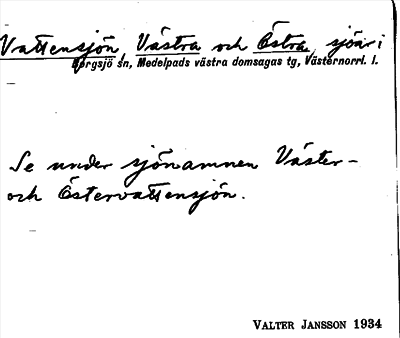 Vattensjön, Västra och Östra, sjöar i
Bergsjö sn, Medelpads västra domsagas tg, Västernorrl. l.
Se under sjönamnen Väster-
och Östervattensjön.
VALTER JANSSON 1934